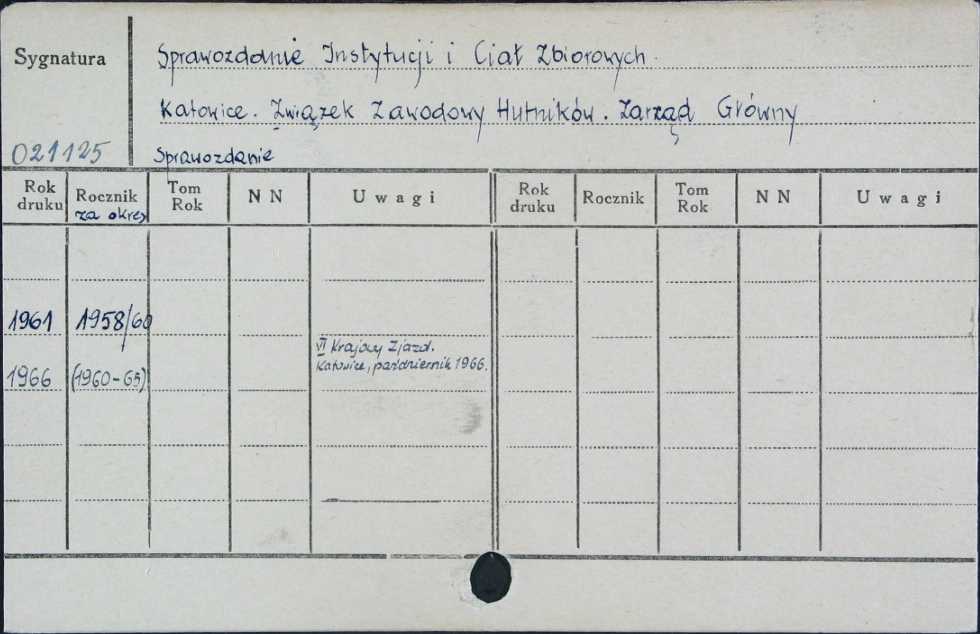 Sygnatura
Sprawozdanie Instytucji i Ciał Zbiorowych.
Katowice. Związek Zawodowy Hutników. Zarząd Główny
021125
Sprawozdanie
Rok druku Rocznik za okres Tom Rok N N Uwagi Rok druku Rocznik Tom Rok N N Uwagi
1961 1958/60
VI Krajowy Zjazd.
Katowice, październik 1966.
1966 (1960-65)